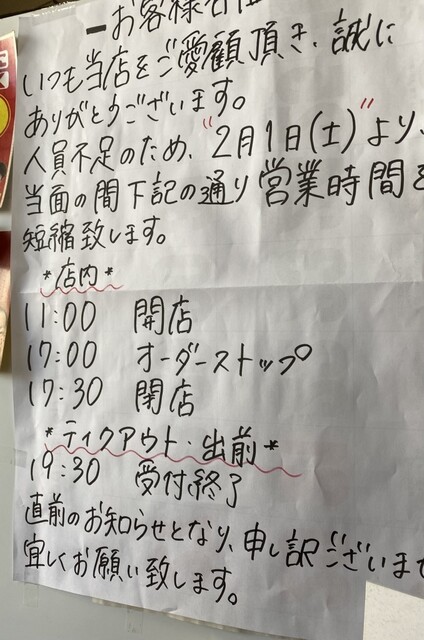 ーお客様各位
いつも当店をご愛顧頂き、誠に
ありがとうございます。
人員不足のため、"2月1日(土)"より、
当面の間下記の通り営業時間を
短縮致します。
*店内*
11:00 開店
17:00 オーダーストップ
17:30 閉店
*ティクアウト・出前*
19:30 受付終了
直前のお知らせとなり、申し訳ございませ
宜しくお願い致します。